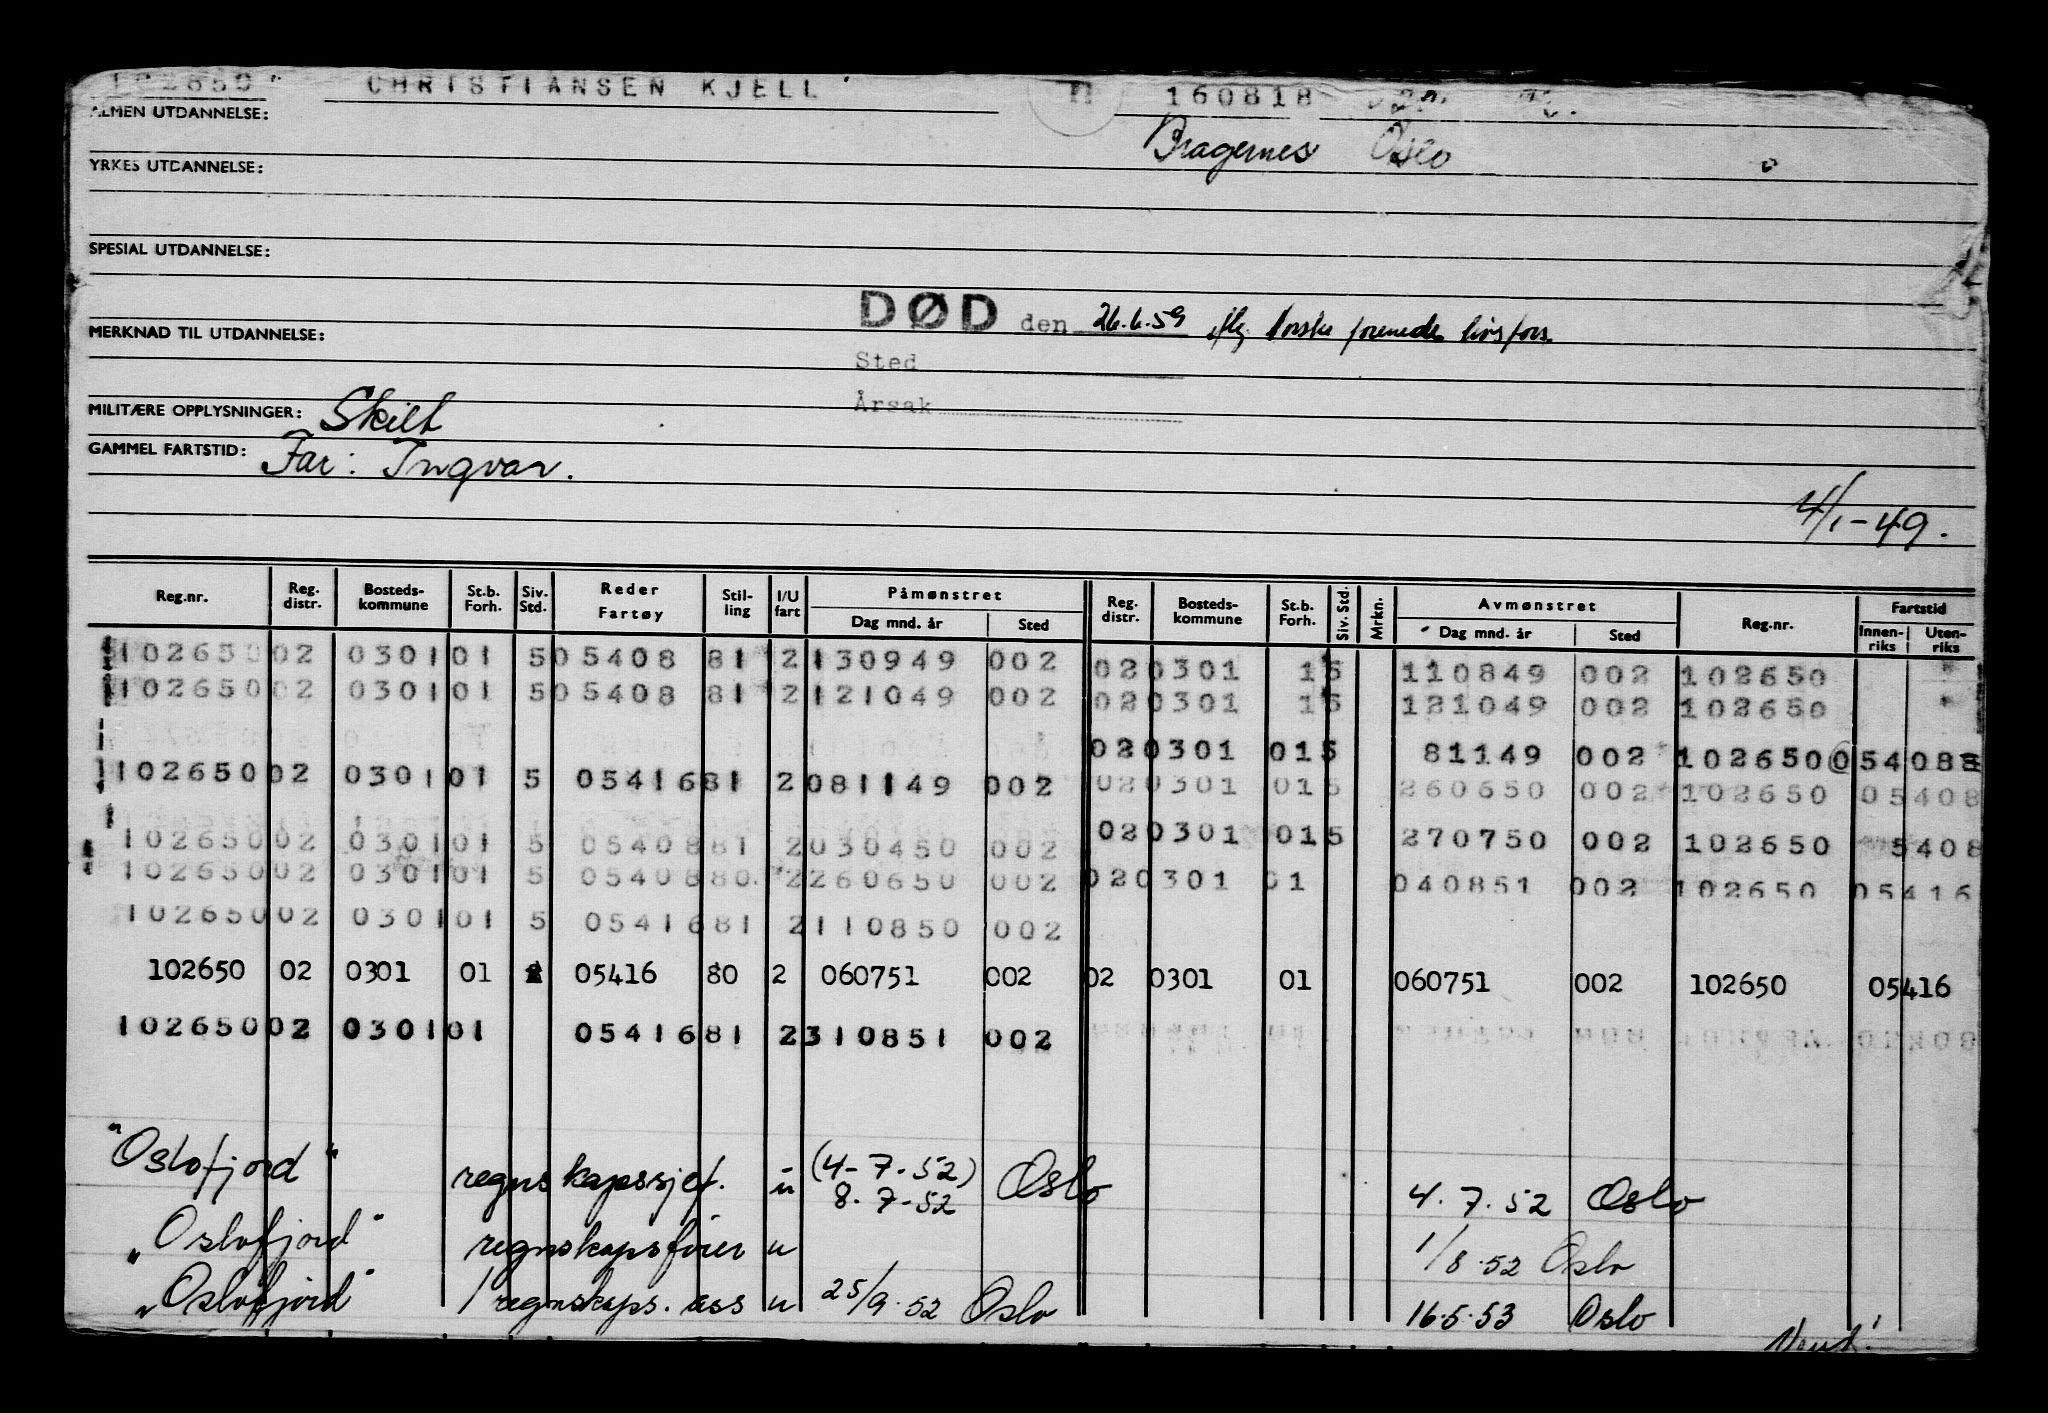 102650 CHRISTIANSEN KJELL 160818
ALMEN UTDANNELSE: Bragernes Oslo
YRKES UTDANNELSE:
SPESIAL UTDANNELSE:
DØD den 26.6.59 iflg. norske forenede livsfors.
MERKNAD TIL UTDANNELSE:
Sted
Årsak
MILITÆRE OPPLYSNINGER: Skilt
GAMMEL FARTSTID: Far: Ingvar.
4/1-49.
Reg.nr. Reg. distr. Bosteds-kommune St.b. Forh. Siv. Std. Reder Fartøy Stil-ling I/U fart Påmønstret Dag mnd. år Sted Reg. distr. Bosteds-kommune St.b. Forh. Siv. Std. Mrkn. Avmønstret Dag mnd. år Sted Reg.nr. Fartstid Innen-riks Uten-riks
102650 02 0301 01 5 05408 81 2 130949 002 02 0301 1 5 110849 002 102650
102650 02 0301 01 5 05408 81 2 121049 002 02 0301 1 5 121049 002 102650
02 0301 01 5 81149 002 102650 05408
102650 02 0301 01 5 05416 81 2 081149 002 02 0301 01 5 260650 002 102650 05408
102650 02 0301 01 5 05408 81 2 030450 002 02 0301 01 5 270750 002 102650 5408
102650 02 0301 01 5 05408 80. 2 260650 002 02 0301 01 040851 002 102650 05416
102650 02 0301 01 5 05416 81 2 110850 002
102650 02 0301 01 05416 80 2 060751 002 02 0301 01 060751 002 102650 05416
102650 02 0301 01 05416 81 2 310851 002
"Oslofjord" regnskapssjef. u (4-7-52) 8.7-52 Oslo 4.7.52 Oslo
"Oslofjord" regnskapsfører u 1/8.52 Oslo
"Oslofjord" 1 regnskaps.ass u 25/9.52 Oslo 16.5.53 Oslo
Vend!